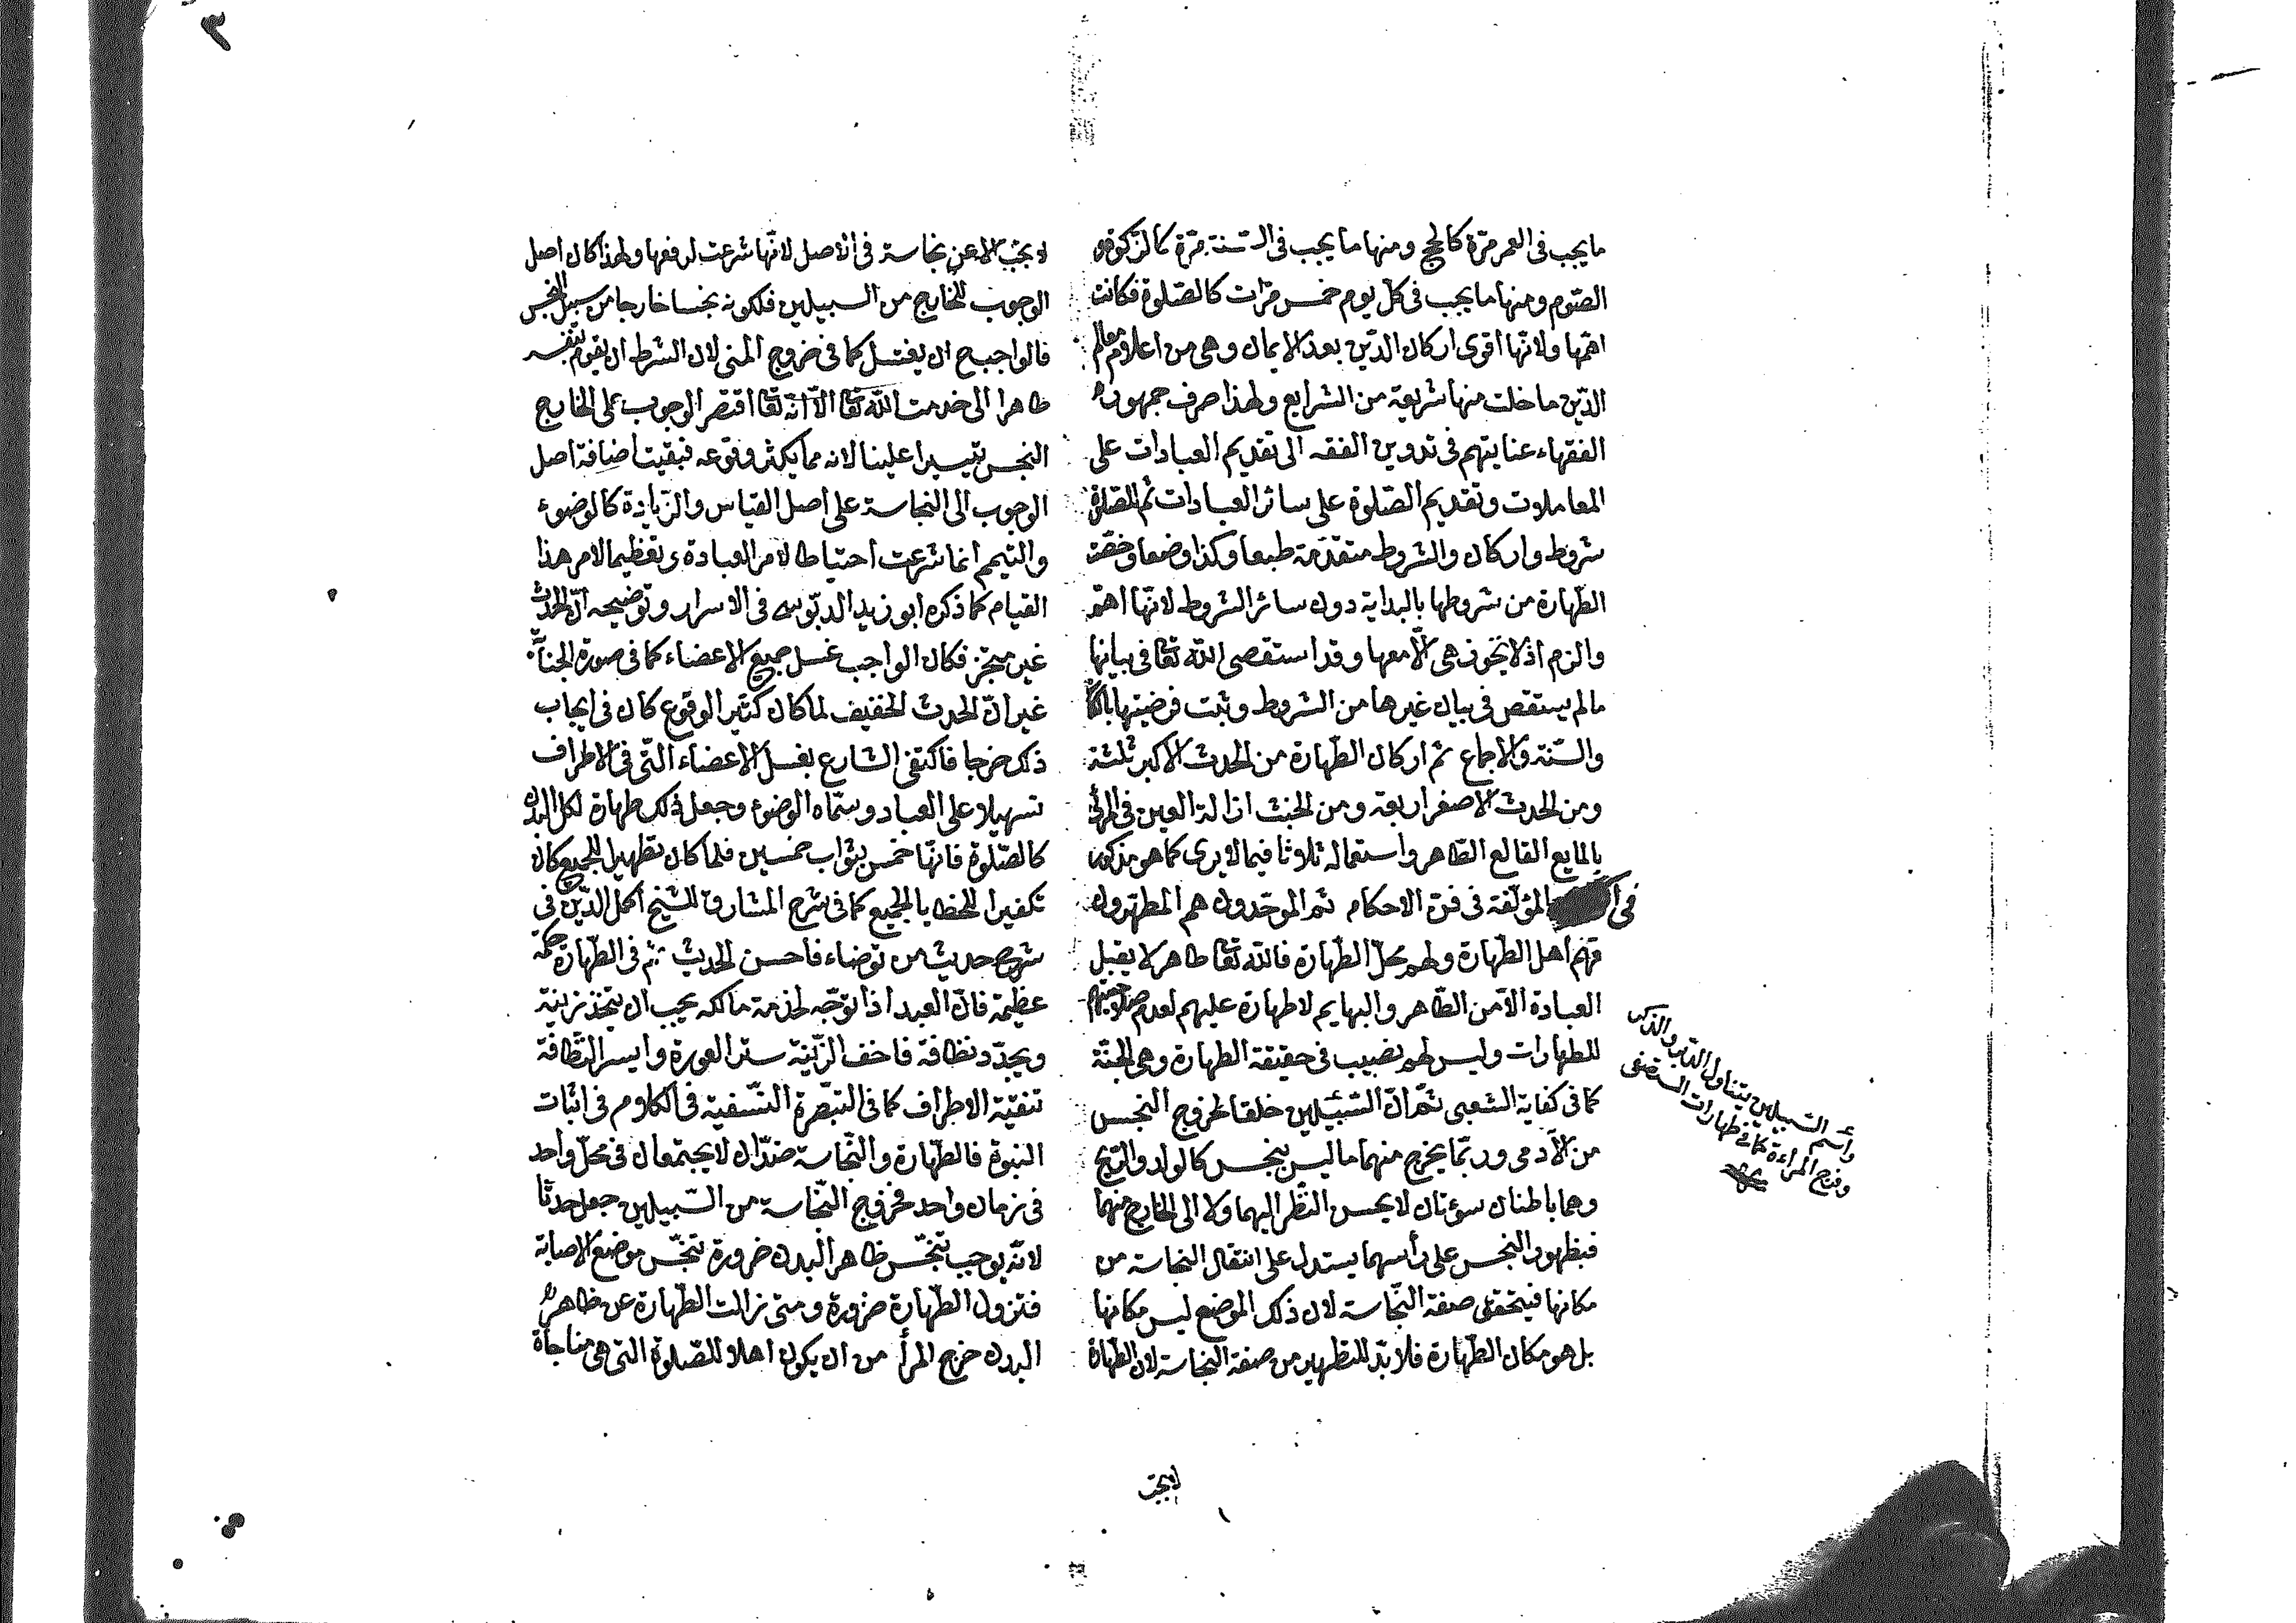 ما يجب فى العمر مرّة كالحج ومنها ما يجب فى السّنة مرّة كالزكوة و
الصّوم ومنها ما يجب فى كلّ يوم خمس مرّات كالصّلوة فكانت
اهمّها ولانّها اقوى اركان الدّين بعد الايمان وهى من اعلام معالم
الدّين ما خلت منها شريعة من الشرايع ولهذا صرف جمهور
الفقهاء عنايتهم فى تدوين الفقه الى تقديم العبادات على
المعاملات وتقديم الصّلوة على سائر العبادات ثم للصّلوة
شروط واركان والشروط متقدّمة طبعا وكذا وضعا وخصّت
الطّهارة من شروطها بالبداية دون سائر الشروط لانّها اهمّ
والزم اذ لا تجوز هى الّا معها وقد استقصى اللّه تعا فى بيانها
ما لم يستقص فى بيان غيرها من الشروط وثبت فرضيتها بالكتا
والسّنة والاجماع ثم اركان الطّهارة من الحدث الاكبر ثلثة
ومن الحدث الاصغر اربعة ومن الخبث ازالة العين فى المرئى
بالمايع القالع الطّاهر واستعماله ثلاثا فيما لا يرى كما هو مذكور
فى المؤلّفة فى فنّ الاحكام ثم الموحّدون هم المطهّرون
فهم اهل الطّهارة ولهم محلّ الطّهارة فاللّه تعا طاهر لا يقبل
العبادة الّا من الطّاهر والبهايم لا طهارة عليهم لعدم صلاحيتهم
للطهارات وليس لهم نصيب فى حقيقة الطهارة وهى الجنّة
كما فى كفاية الشعبى ثم انّ السّبيلين خلقا لخروج النجس
من الآدمى وربّما يخرج منهما ما ليس بنجس كالولد والرّيح
وهما باطنان سوءتان لا يحسن النّظر اليهما ولا الى الخارج منهما
فبظهور النجس على رأسهما يستدل على انتقال النجاسة من
مكانها فيتحقق صفة النّجاسة لان ذلك الموضع ليس مكانها
بل هو مكان الطّهارة فلا بدّ للتطهير من صفة النجاسة لان الطّهارة
واسم السّبيلين يتناول الدّبر والذكر
وفرج المراءة كما فى طهارات المستصفى
لا يجب
٣
لا يجب الا عن نجاسة فى الاصل لانّها شرعت لرفعها ولهذا كان اصل
الوجوب للخارج من السبيلين فلكونه نجسا خارجا من سبيل النجس
فالواجب ح ان يغتسل كما فى خروج المنى لان الشرط ان يقوم بنفسه
طاهرا الى خدمت اللّه تعا الّا انّه تعا اقتصر الوجوب على الخارج
النجس تيسيرا علينا لانه مما يكثر وقوعه فبقيت اضافة اصل
الوجوب الى النجاسة على اصل القياس والزّيادة كالوضوء
والتيمم انما شرعت احتياطا لامر العبادة وتعظيما لامر هذا
القيام كما ذكره ابو زيد الدبّوسى فى الاسرار وتوضيحه انّ الحدث
غير متجزّ فكان الواجب غسل جميع الاعضاء كما فى صورة الجنابة
غير انّ الحدث الخفيف لما كان كثير الوقوع كان فى ايجاب
ذلك حرجا فاكتفى الشارع بغسل الاعضاء التّى فى الاطراف
تسهيلا على العباد وسمّاه الوضوء وجعل ذلك طهارة لكل البدن
كالصّلوة فانّها خمس بثواب خمسين فلما كان تطهيرا للجميع كان
تكفيرا للخطايا لجميع كما فى شرح المشارق للشيخ اكمل الدّين فى
شرح حديث من توضاء فاحسن الحديث ثم فى الطّهارة حكمة
عظيمة فانّ العبد اذا توجّه لخدمة مالكه يجب ان يتخذ زينة
ويجدّد نظافة فاخف الزّينة ستر العورة وايسر النّظافة
تنقية الاطراف كما فى التبصرة النّسفية فى الكلام فى اثبات
النبوة فالطّهارة والنّجاسة ضدّان لا يجتمعان فى محلّ واحد
فى زمان واحد فخروج النّجاسة من السّبيلين جعل حدثا
لانّه يوجب تنجّس ظاهر البدن ضرورة تنجّس موضع الاصابة
فتزول الطّهارة ضرورة ومتى زالت الطّهارة عن ظاهر
البدن خرج المرأ من ان يكون اهلا للصّلوة التى هى مناجاة